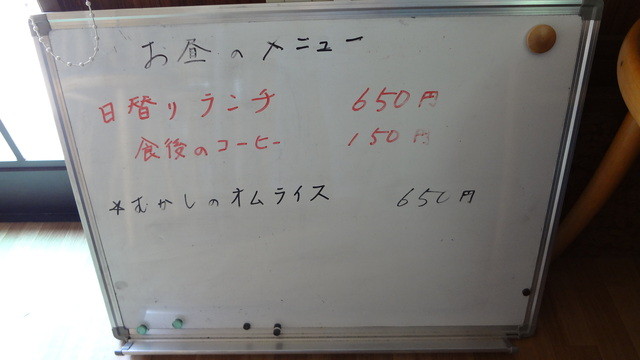 お昼のメニュー
日替りランチ 650円
食後のコーヒー 150円
*むかしのオムライス 650円